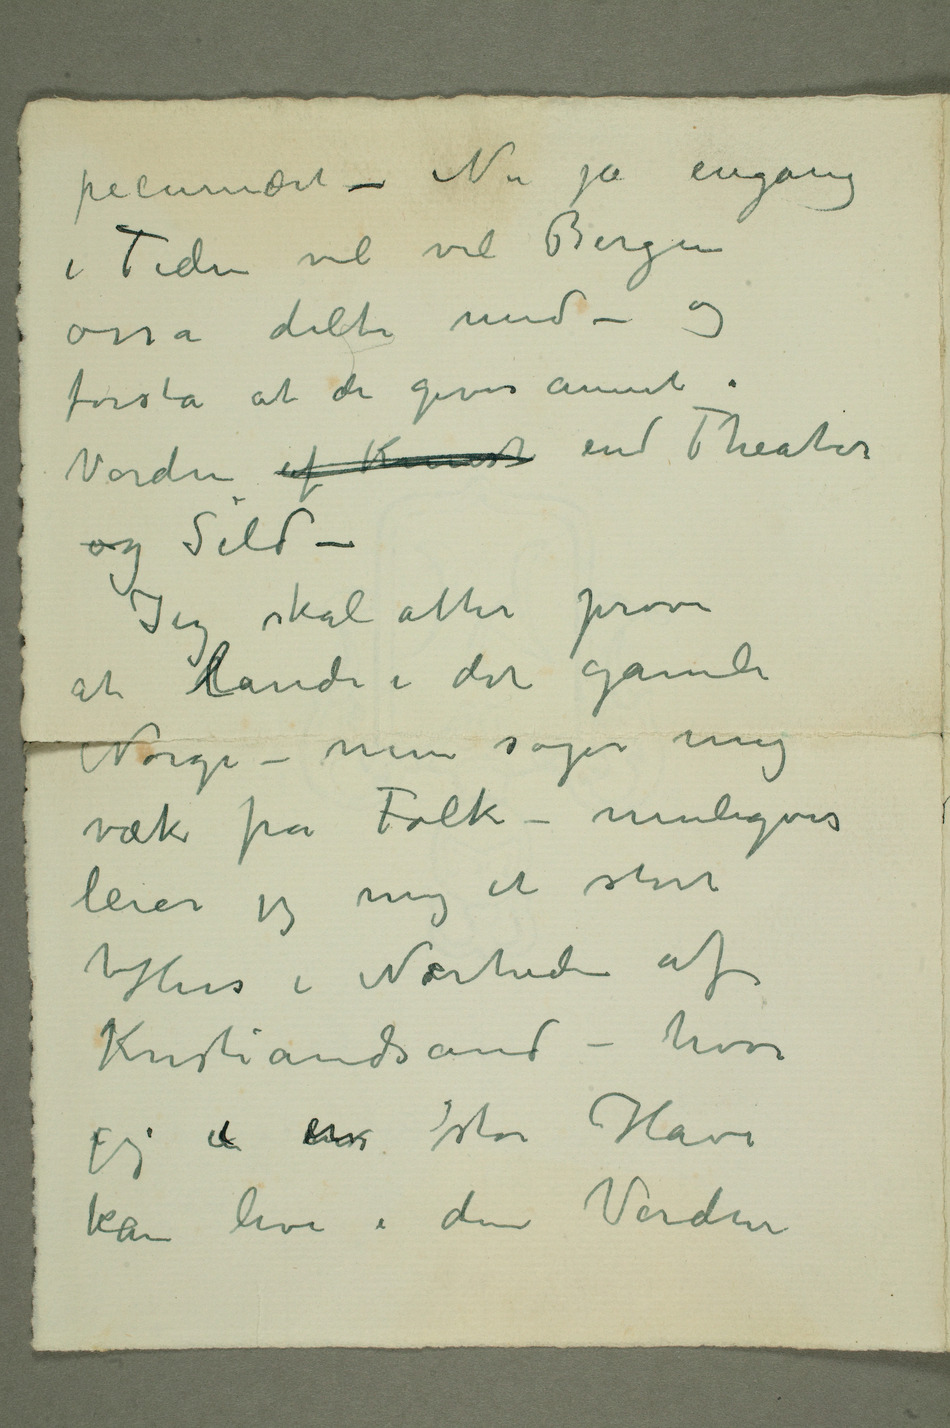 pecuniært – Nu ja engang
i Tiden vil vel Bergen
ossa delta med – og
forstå at der gives annet i
Verden af Kunst end Theater
og Sild –
Jeg skal atter prøve
at lande i det gamle
Norge – men søger mig
væk fra Folk – muligvis
leier jeg mig et stort
Hus i Nærheden af
Kristiandsand – hvor
jeg i en stor Have
kan leve i den Verden